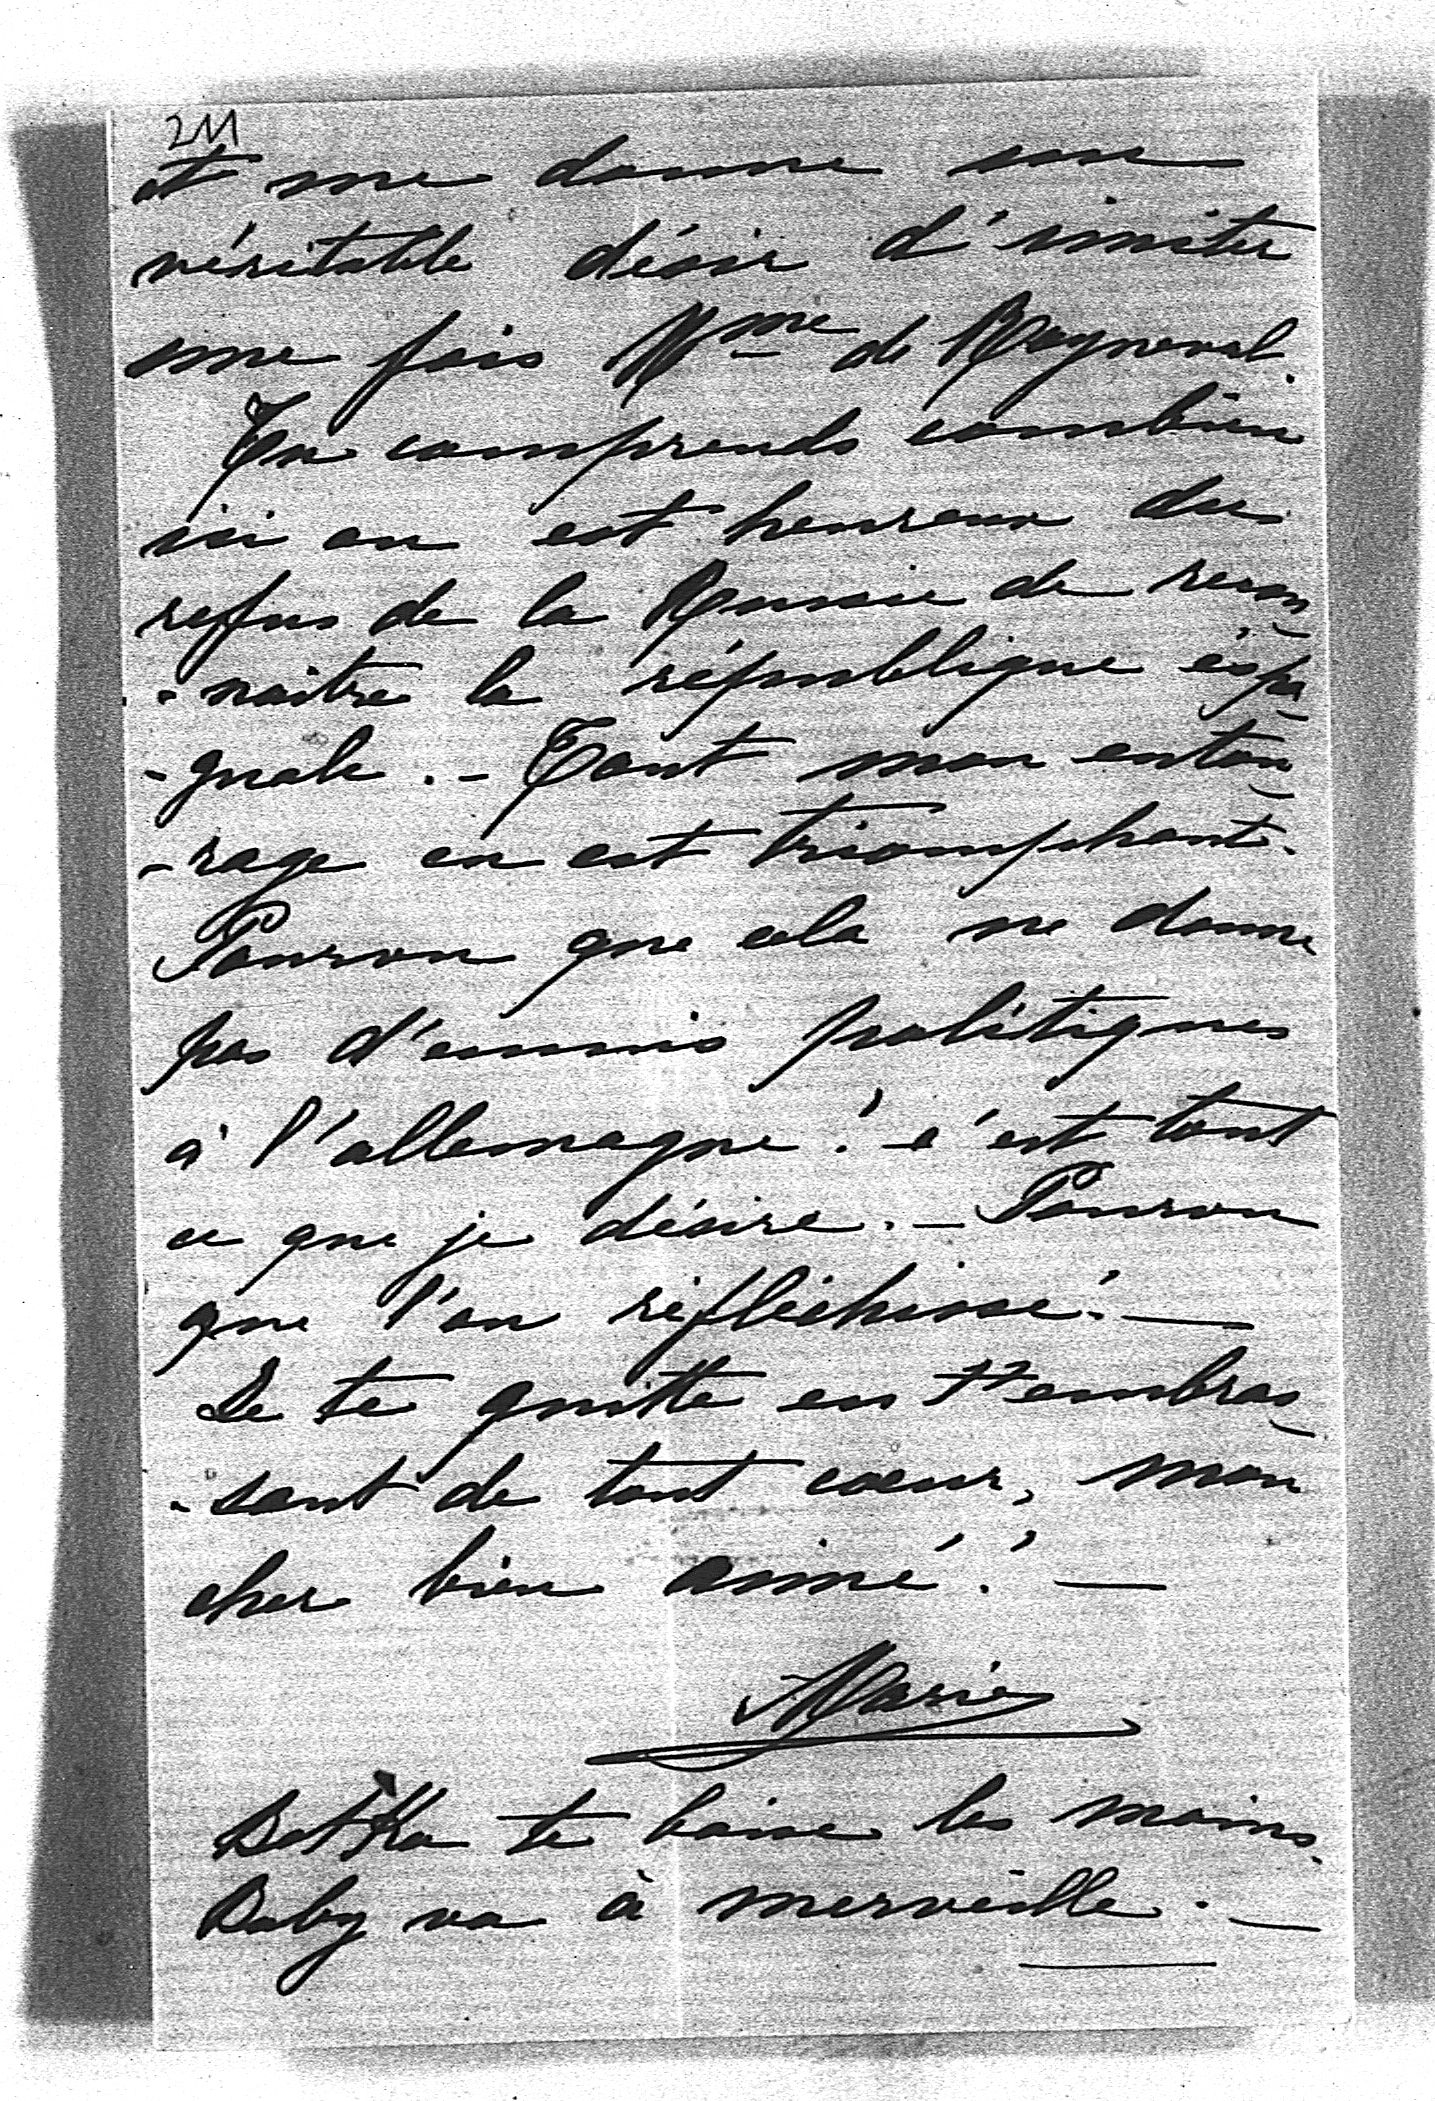 211
et me donne un
véritable désir d'imiter
une fois Mme de Rayneval.
Tu comprends combien
ici on est heureux du
refus de la Russie de recon-
-naitre la république espa-
-gnole. - Tout mon entou-
-rage en est triomphant.
Pourvu que cela ne donne
pas d'ennuis politiques
à l'allemagne! c'est tout
ce que je désire. - Pourvu
que l'on réfléchisse! —
Je te quitte en t'embras-
-sant de tout cœur, mon
cher bien aimé! —
Marie
Betka te baise les mains.
Baby va à merveille. —